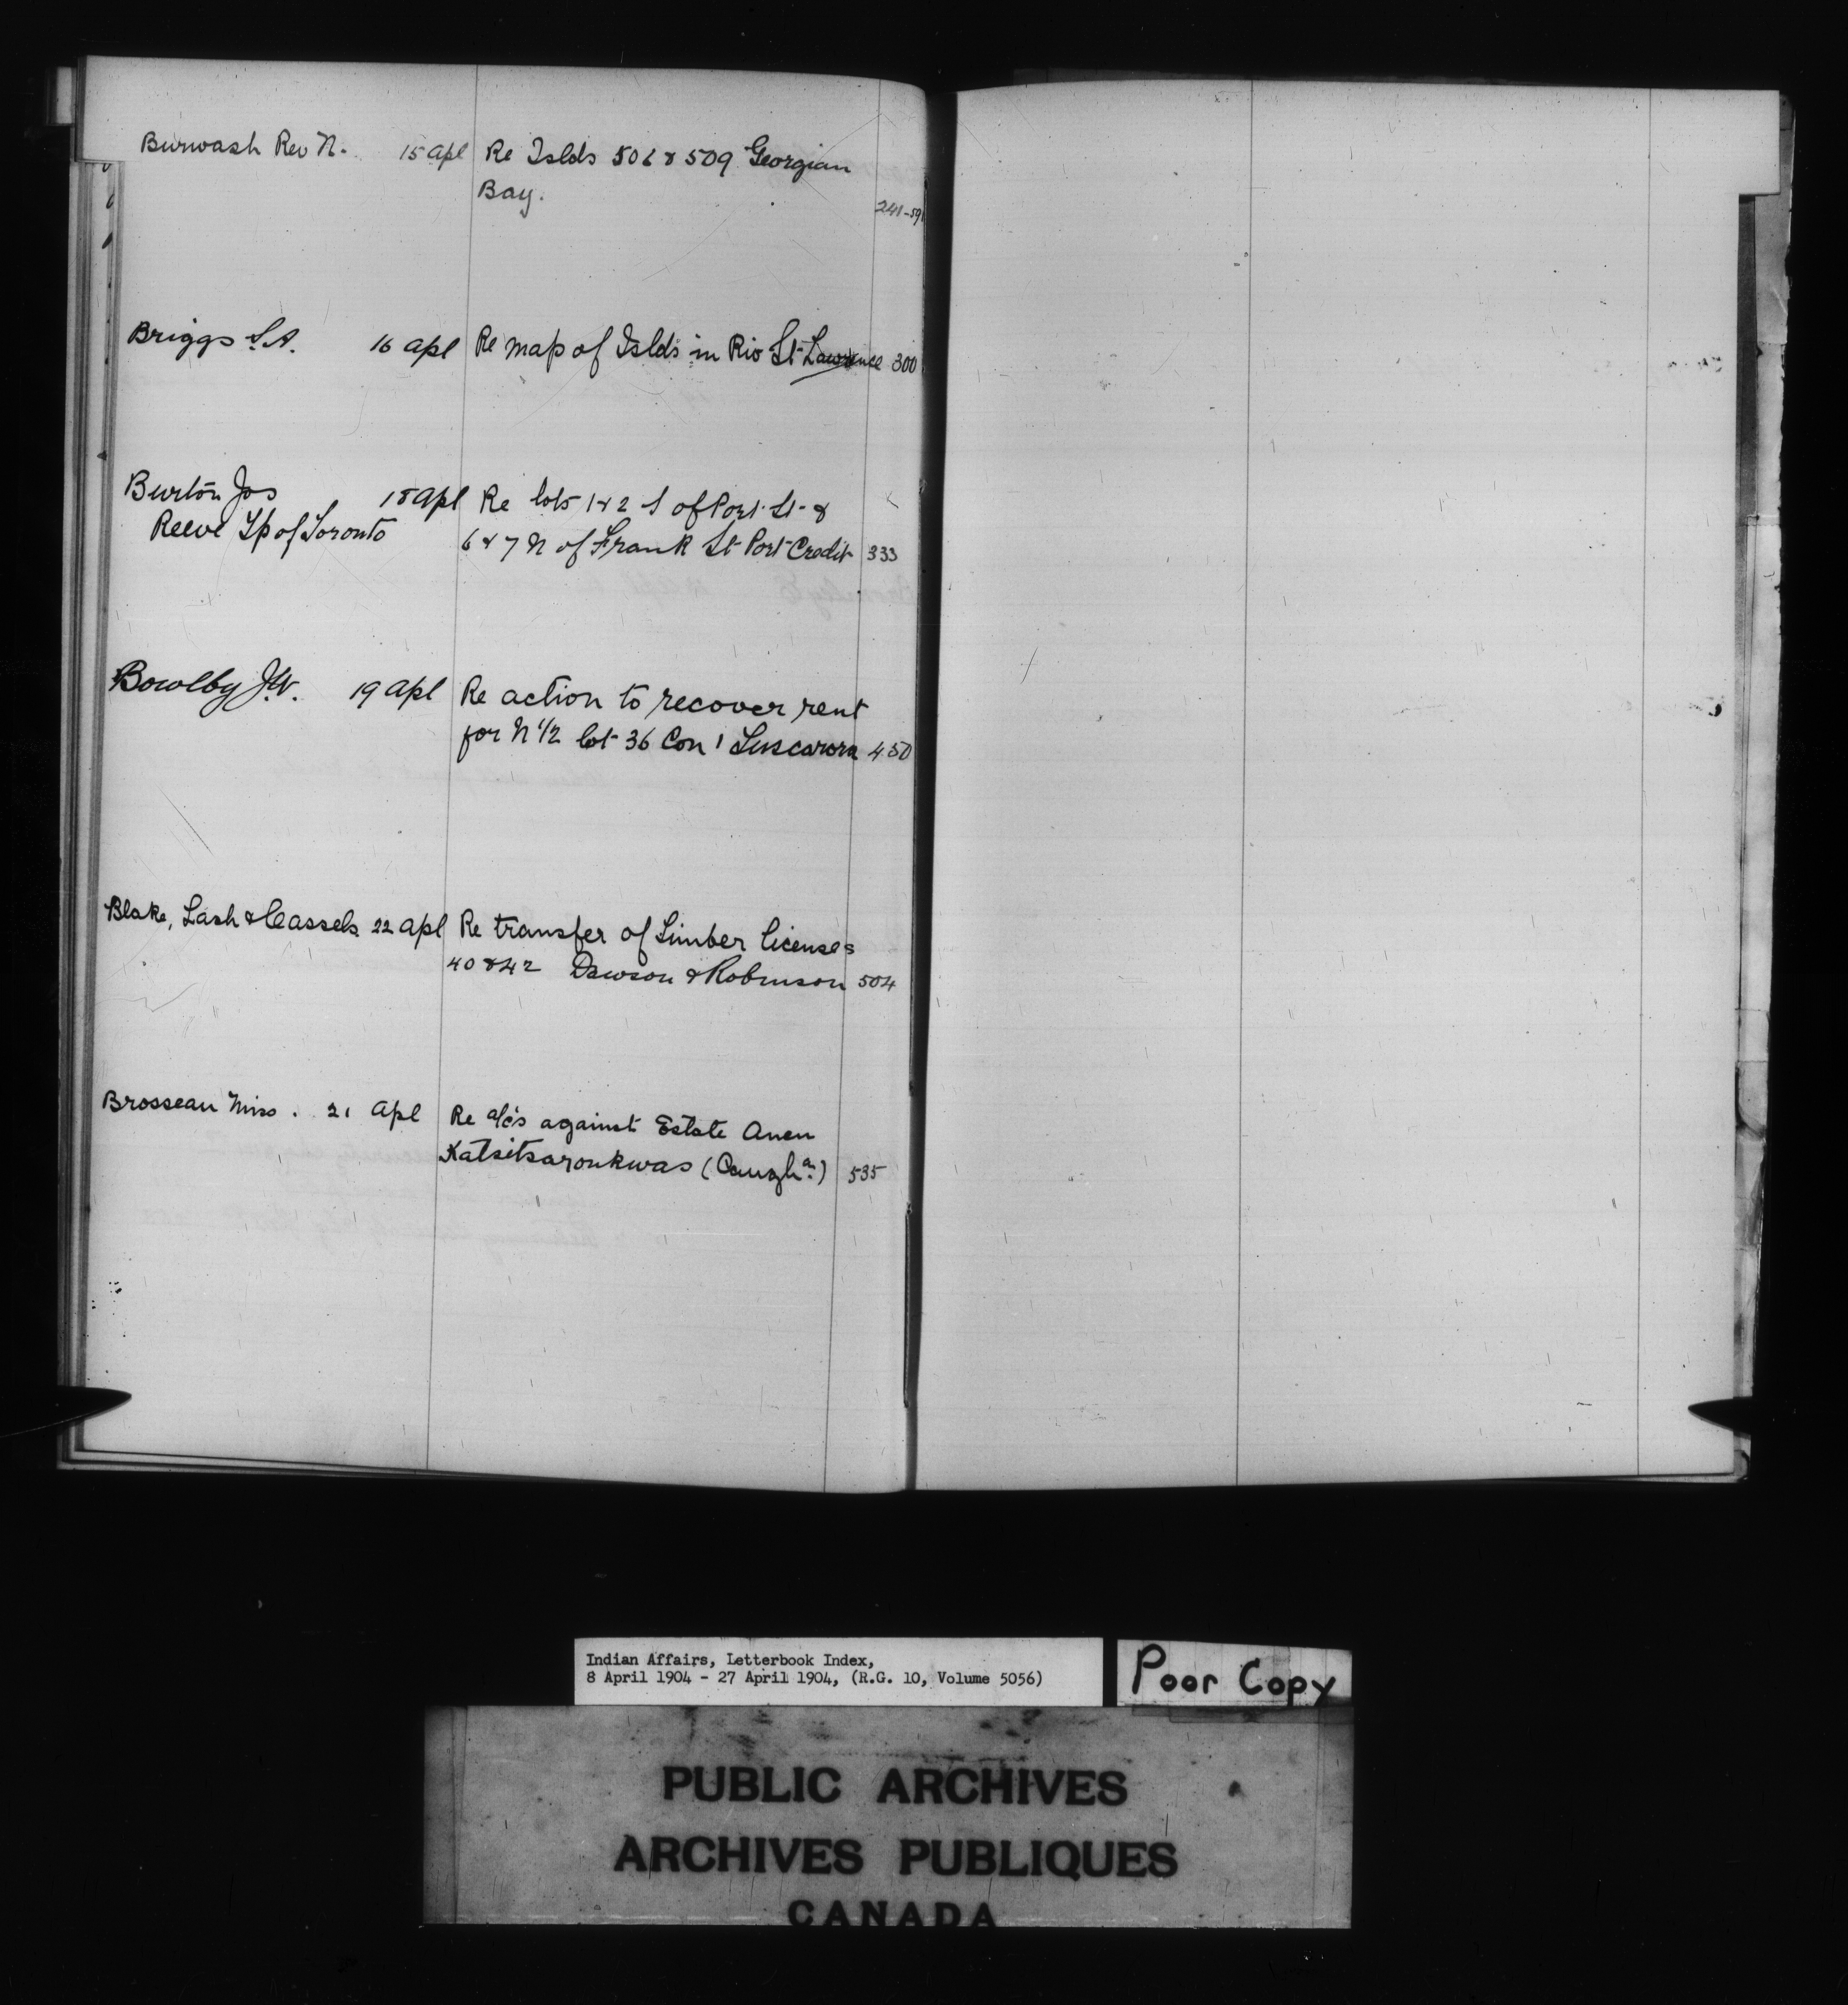 Burwash Rev N. 15 Apl Re Islds 506 & 509 Georgian
Bay. 241-591
Briggs S.A. 16 Apl Re map of Islds in Riv St Lawrence 300
Burton Jos 18 Apl Re lots 1 & 2 S of Port St &
Reeve Tp of Toronto 6 & 7 N of Frank St Port Credit 333
Bowlby J.W. 19 Apl Re action to recover rent
for N 1/2 lot 36 Con 1 Tuscarora 450
Blake, Lash & Cassels 22 Apl Re transfer of Timber licenses
40 & 42 Dawson & Robinson 504
Brosseau Miss. 21 Apl Re a/cs against Estate Anen
Katsitsaronkwas (Caugha.) 535
Indian Affairs, Letterbook Index,
8 April 1904 - 27 April 1904, (R.G. 10, Volume 5056)
Poor Copy
PUBLIC ARCHIVES
ARCHIVES PUBLIQUES
CANADA